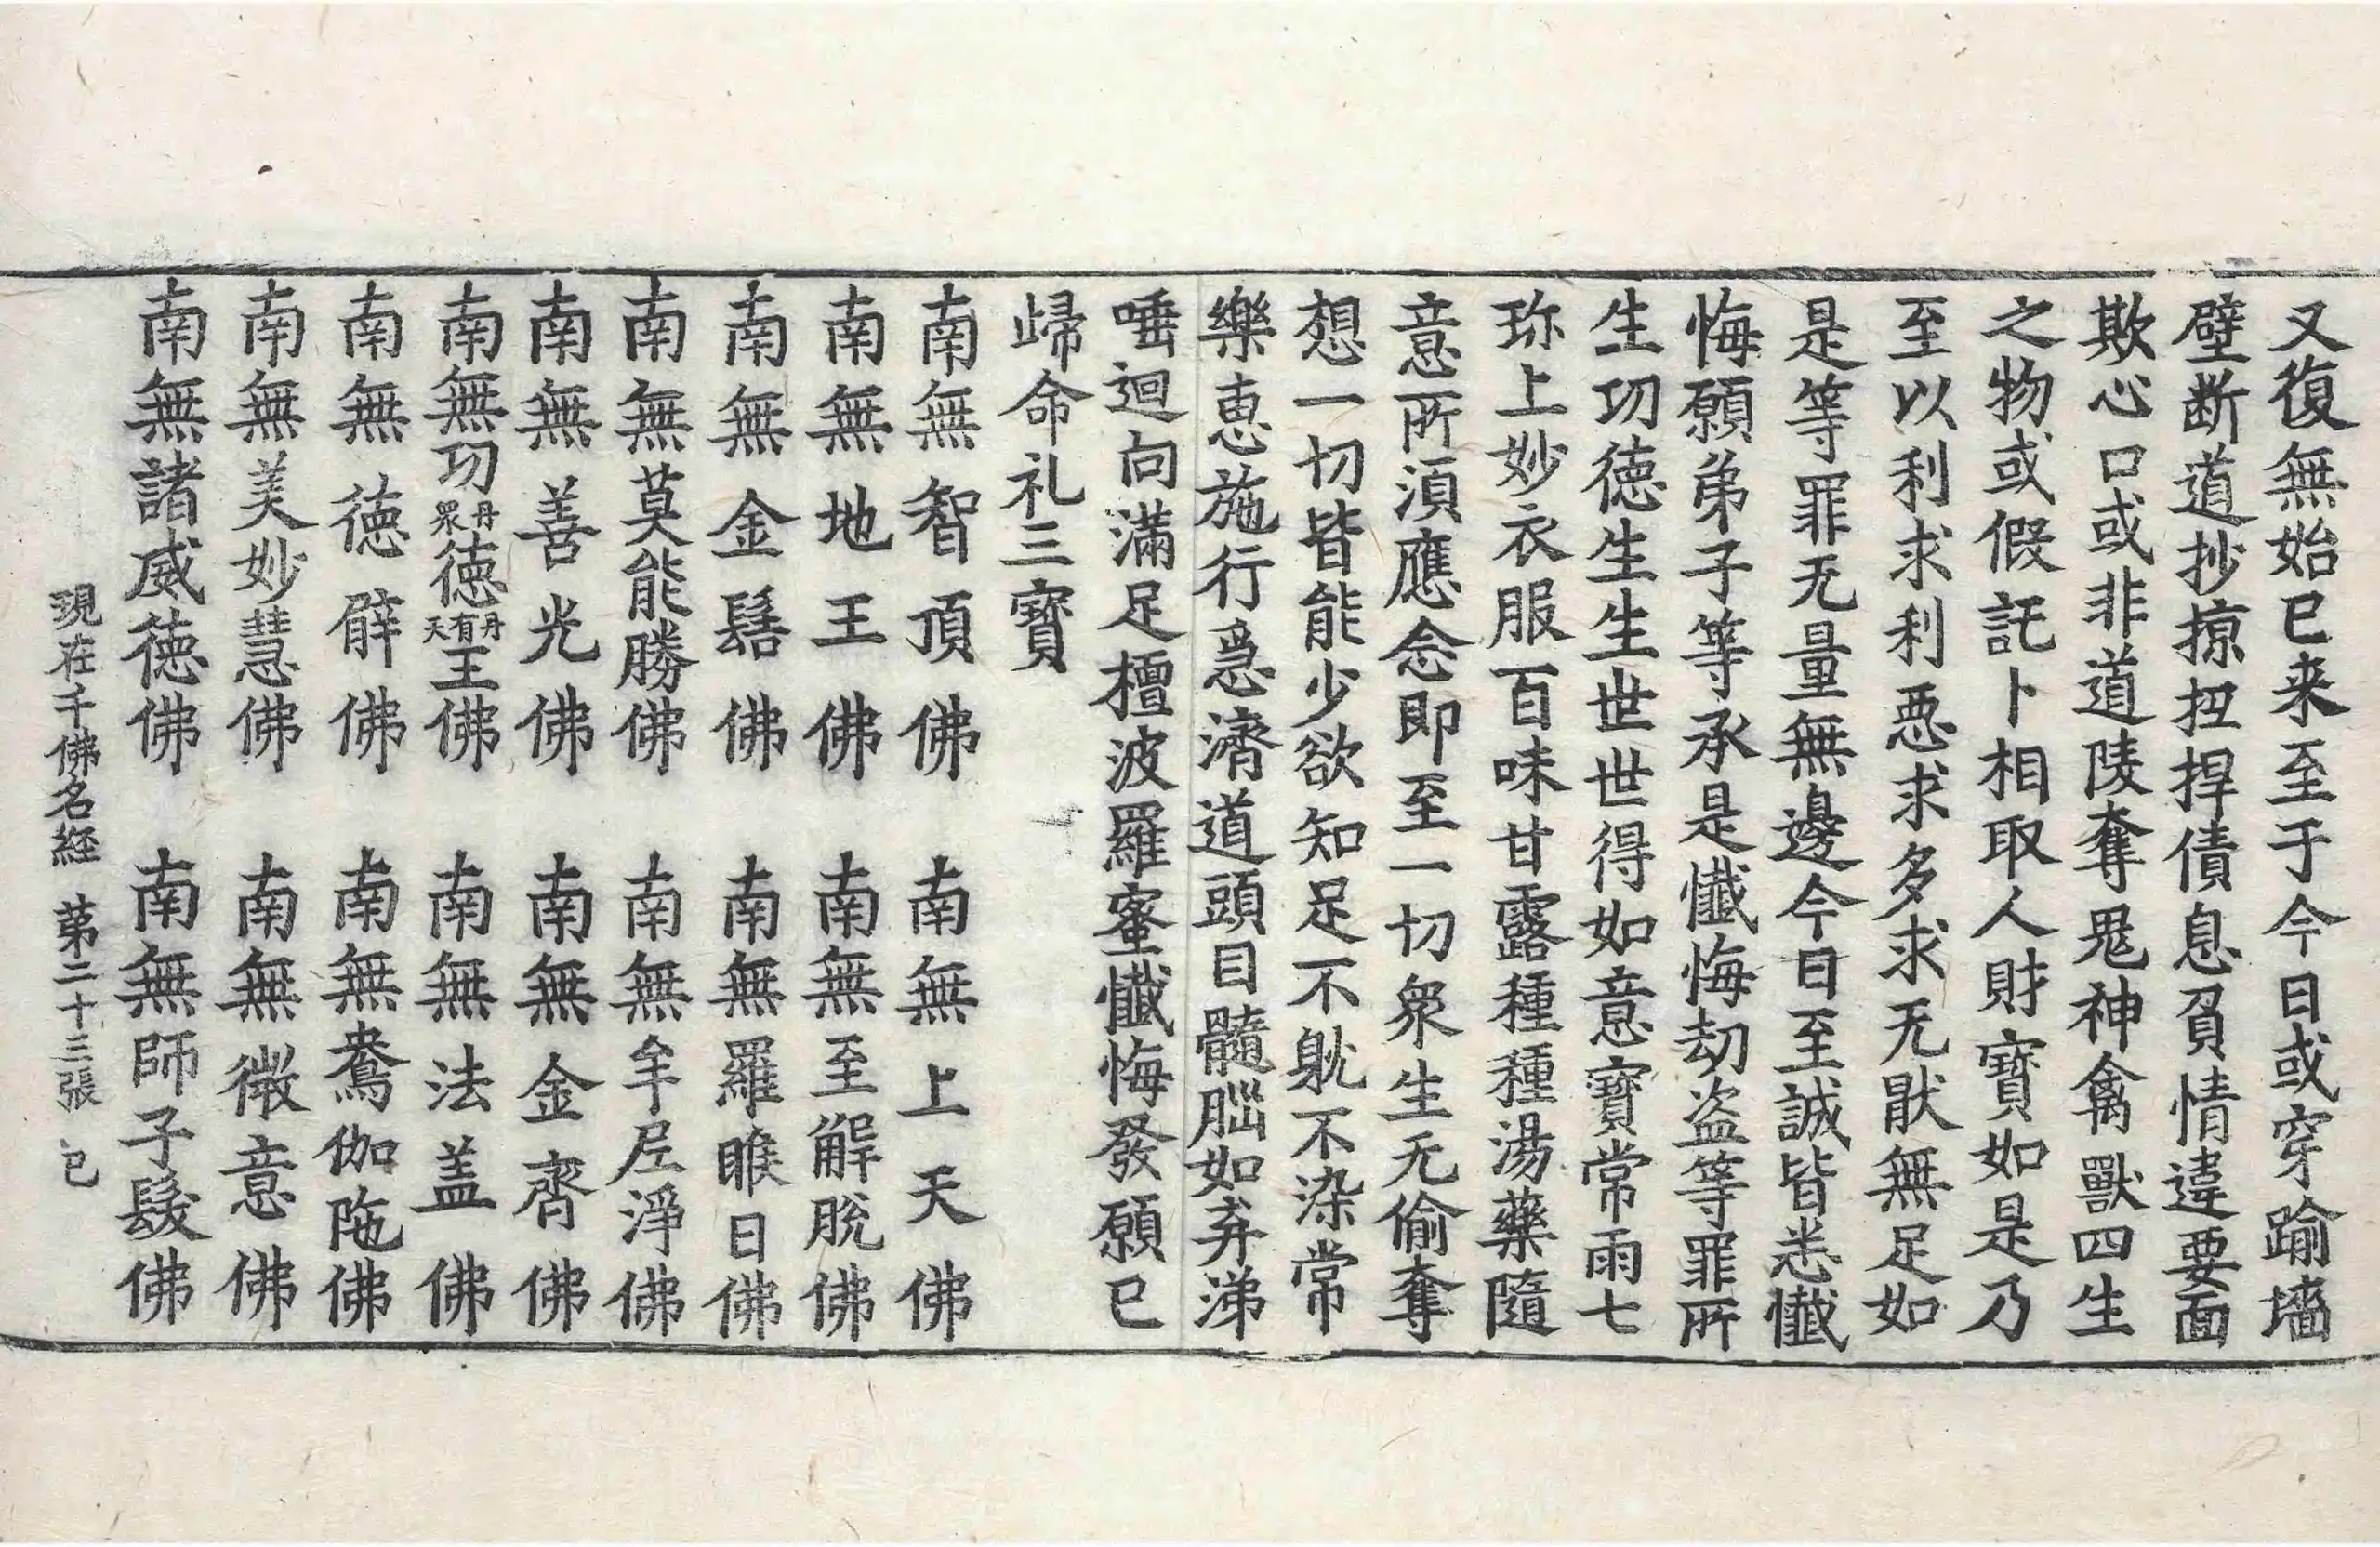 又復無始已来至于今日或穿踰墻
壁断道抄掠扭捍債息負情違要面
欺心口或非道陵奪鬼神禽獸四生
之物或假託卜相取人財寶如是乃
至以利求利惡求多求无猒無足如
是等罪无量無邊今日至誠皆悉懺
悔願弟子等承是懺悔劫盗等罪所
生功德生生世世得如意寶常雨七
珎上妙衣服百味甘露種種湯藥隨
意所湏應念即至一切衆生无偷奪
想一切皆能少欲知足不躭不染常
樂恵施行急濟道頭目髓腦如弃涕
唾迴向滿足檀波羅蜜懺悔發願已
歸命礼三寶
南無智頂佛 南無上天佛
南無地王佛 南無至解脫佛
南無金髻佛 南無羅睺日佛
南無莫能勝佛 南無牟尼淨佛
南無善光佛 南無金齊佛
南無功丹衆德丹有天王佛 南無法盖佛
南無德臂佛 南無鴦伽陁佛
南無美妙慧佛 南無微意佛
南無諸威德佛 南無師子髮佛
現在千佛名経 第二十三張 已